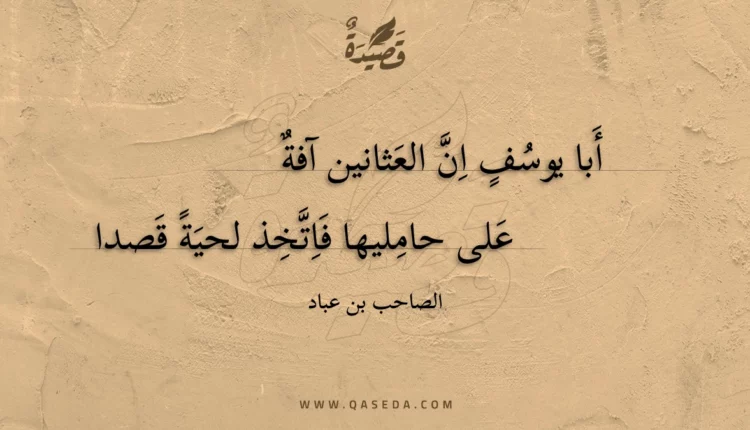 قَصِيدَةٌ
أَبا يوسُفٍ اِنَّ العَثانين آفةٌ
عَلى حامِليها فَاِتَّخِذ لحيَةً قَصدا
الصاحب بن عباد
WWW.QASEDA.COM